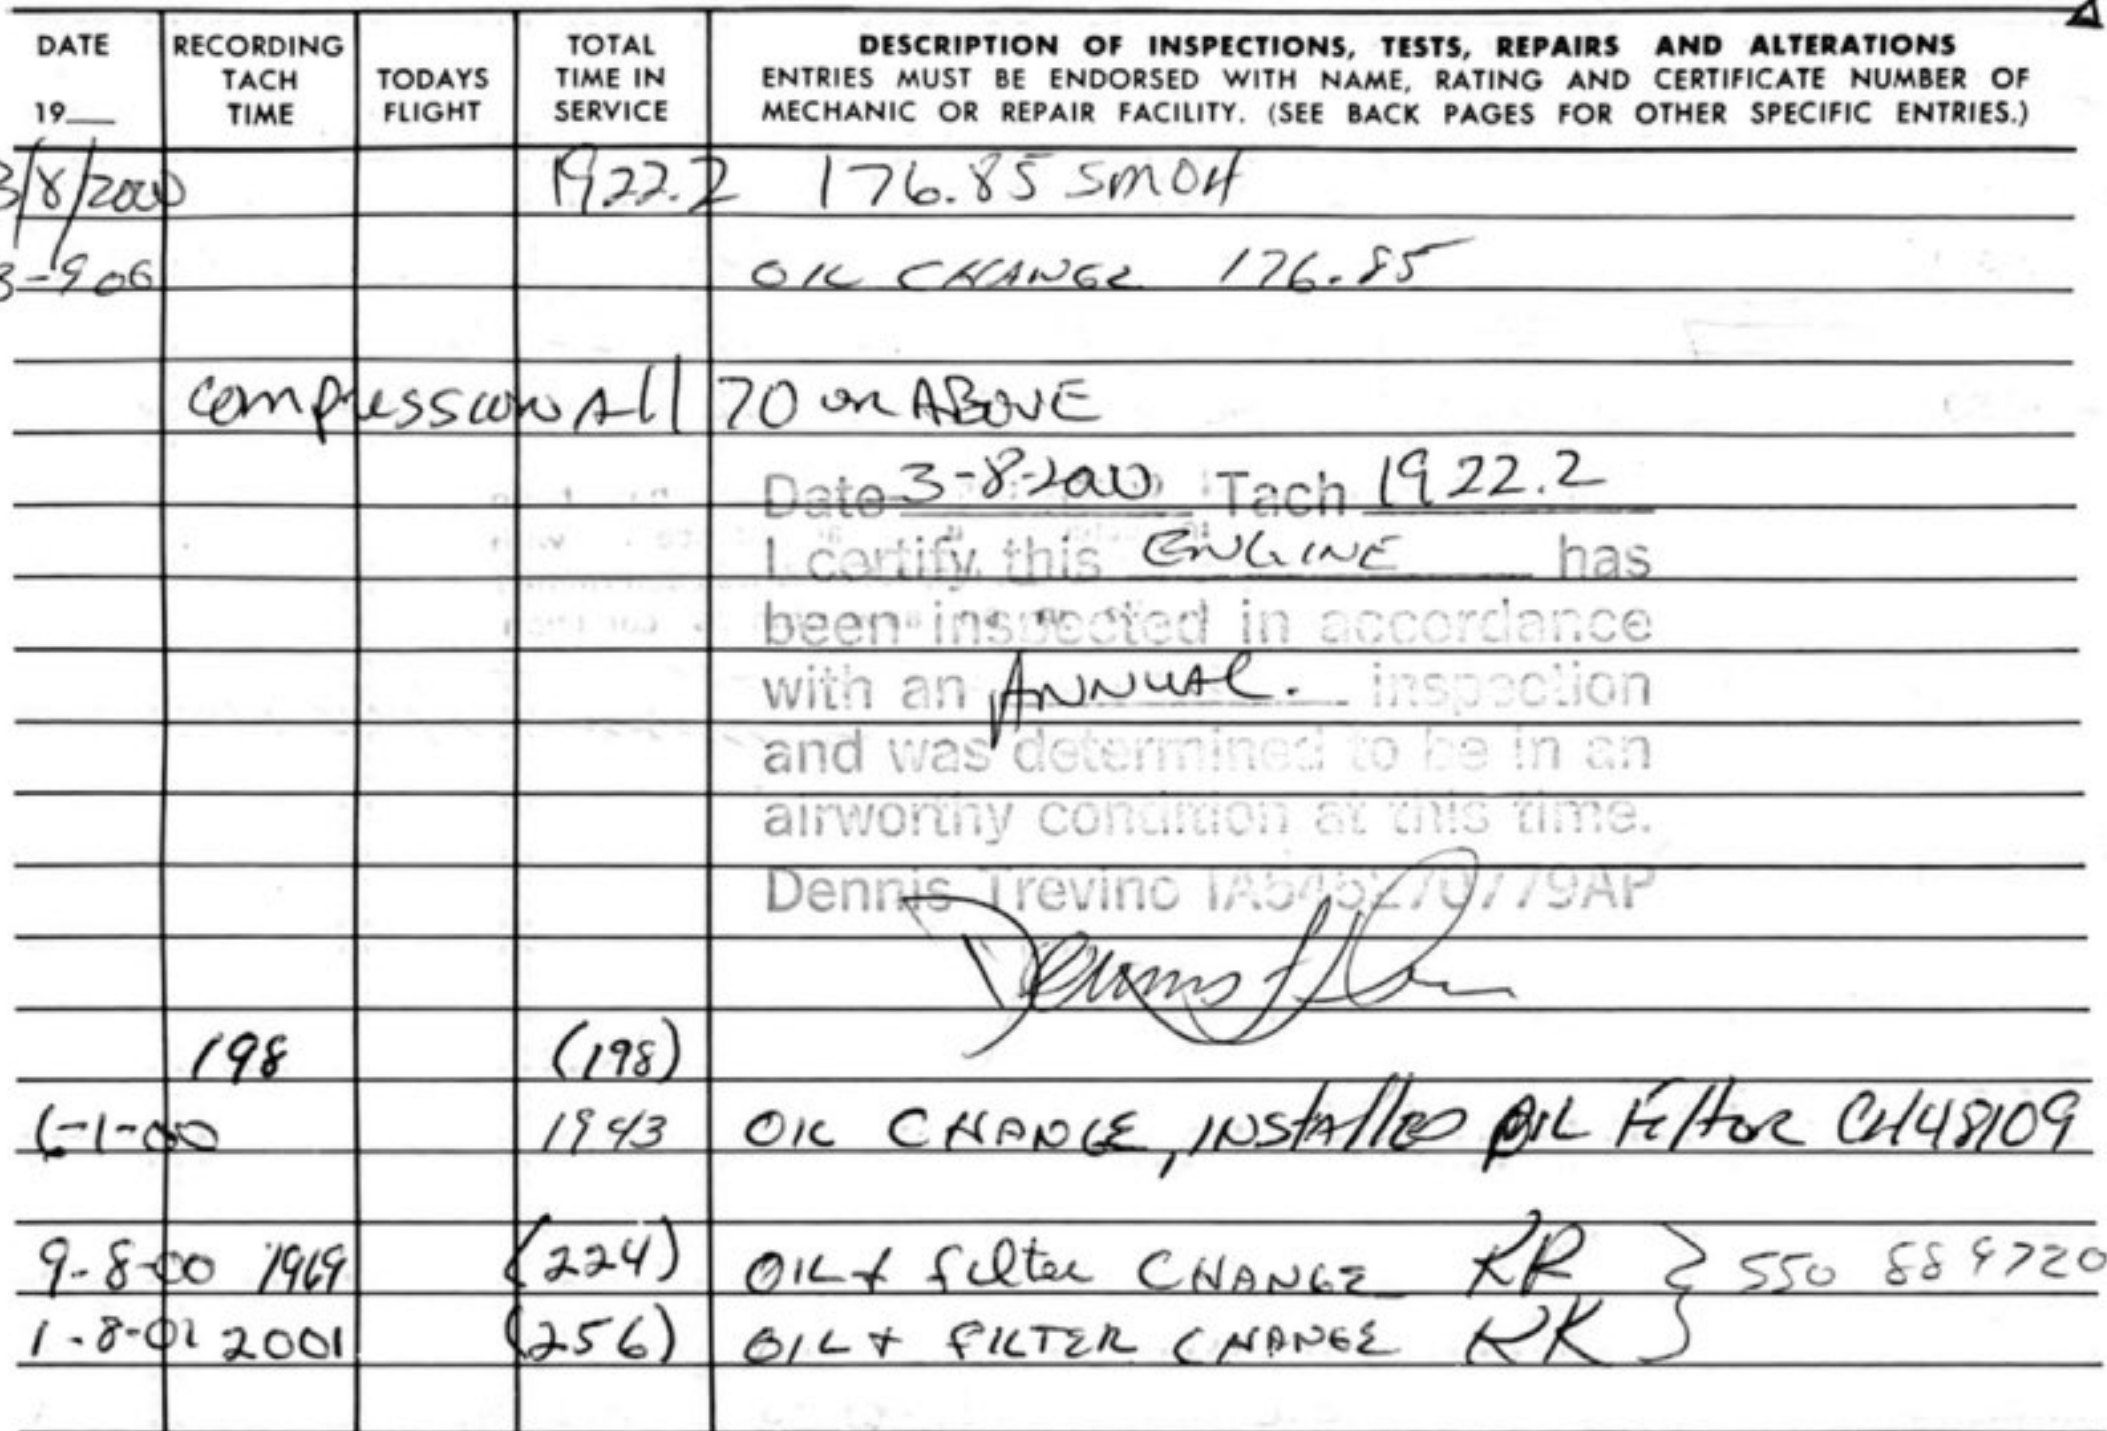 DATE RECORDING TODAYS TOTAL DESCRIPTION OF INSPECTIONS, TESTS, REPAIRS AND ALTERATIONS
TACH FLIGHT TIME IN ENTRIES MUST BE ENDORSED WITH NAME, RATING AND CERTIFICATE NUMBER OF
19__ TIME SERVICE MECHANIC OR REPAIR FACILITY. (SEE BACK PAGES FOR OTHER SPECIFIC ENTRIES.)
3/8/2000 1922.2 176.85 SMOH
OIL CHANGE 176.85
Compression All 70 or ABOVE
Date 3-8-2000 Tach 1922.2
I certify this ENGINE has
been inspected in accordance
with an ANNUAL. inspection
and was determined to be in an
airworthy condition at this time.
Dennis Trevino IA545270779AP
198 (198)
1943 OIL CHANGE, INSTALLED OIL Filter CH48109
9-8-00 1969 (224) OIL + filter CHANGE KR } 550 889720
2001 (256) OIL + FILTER CHANGE